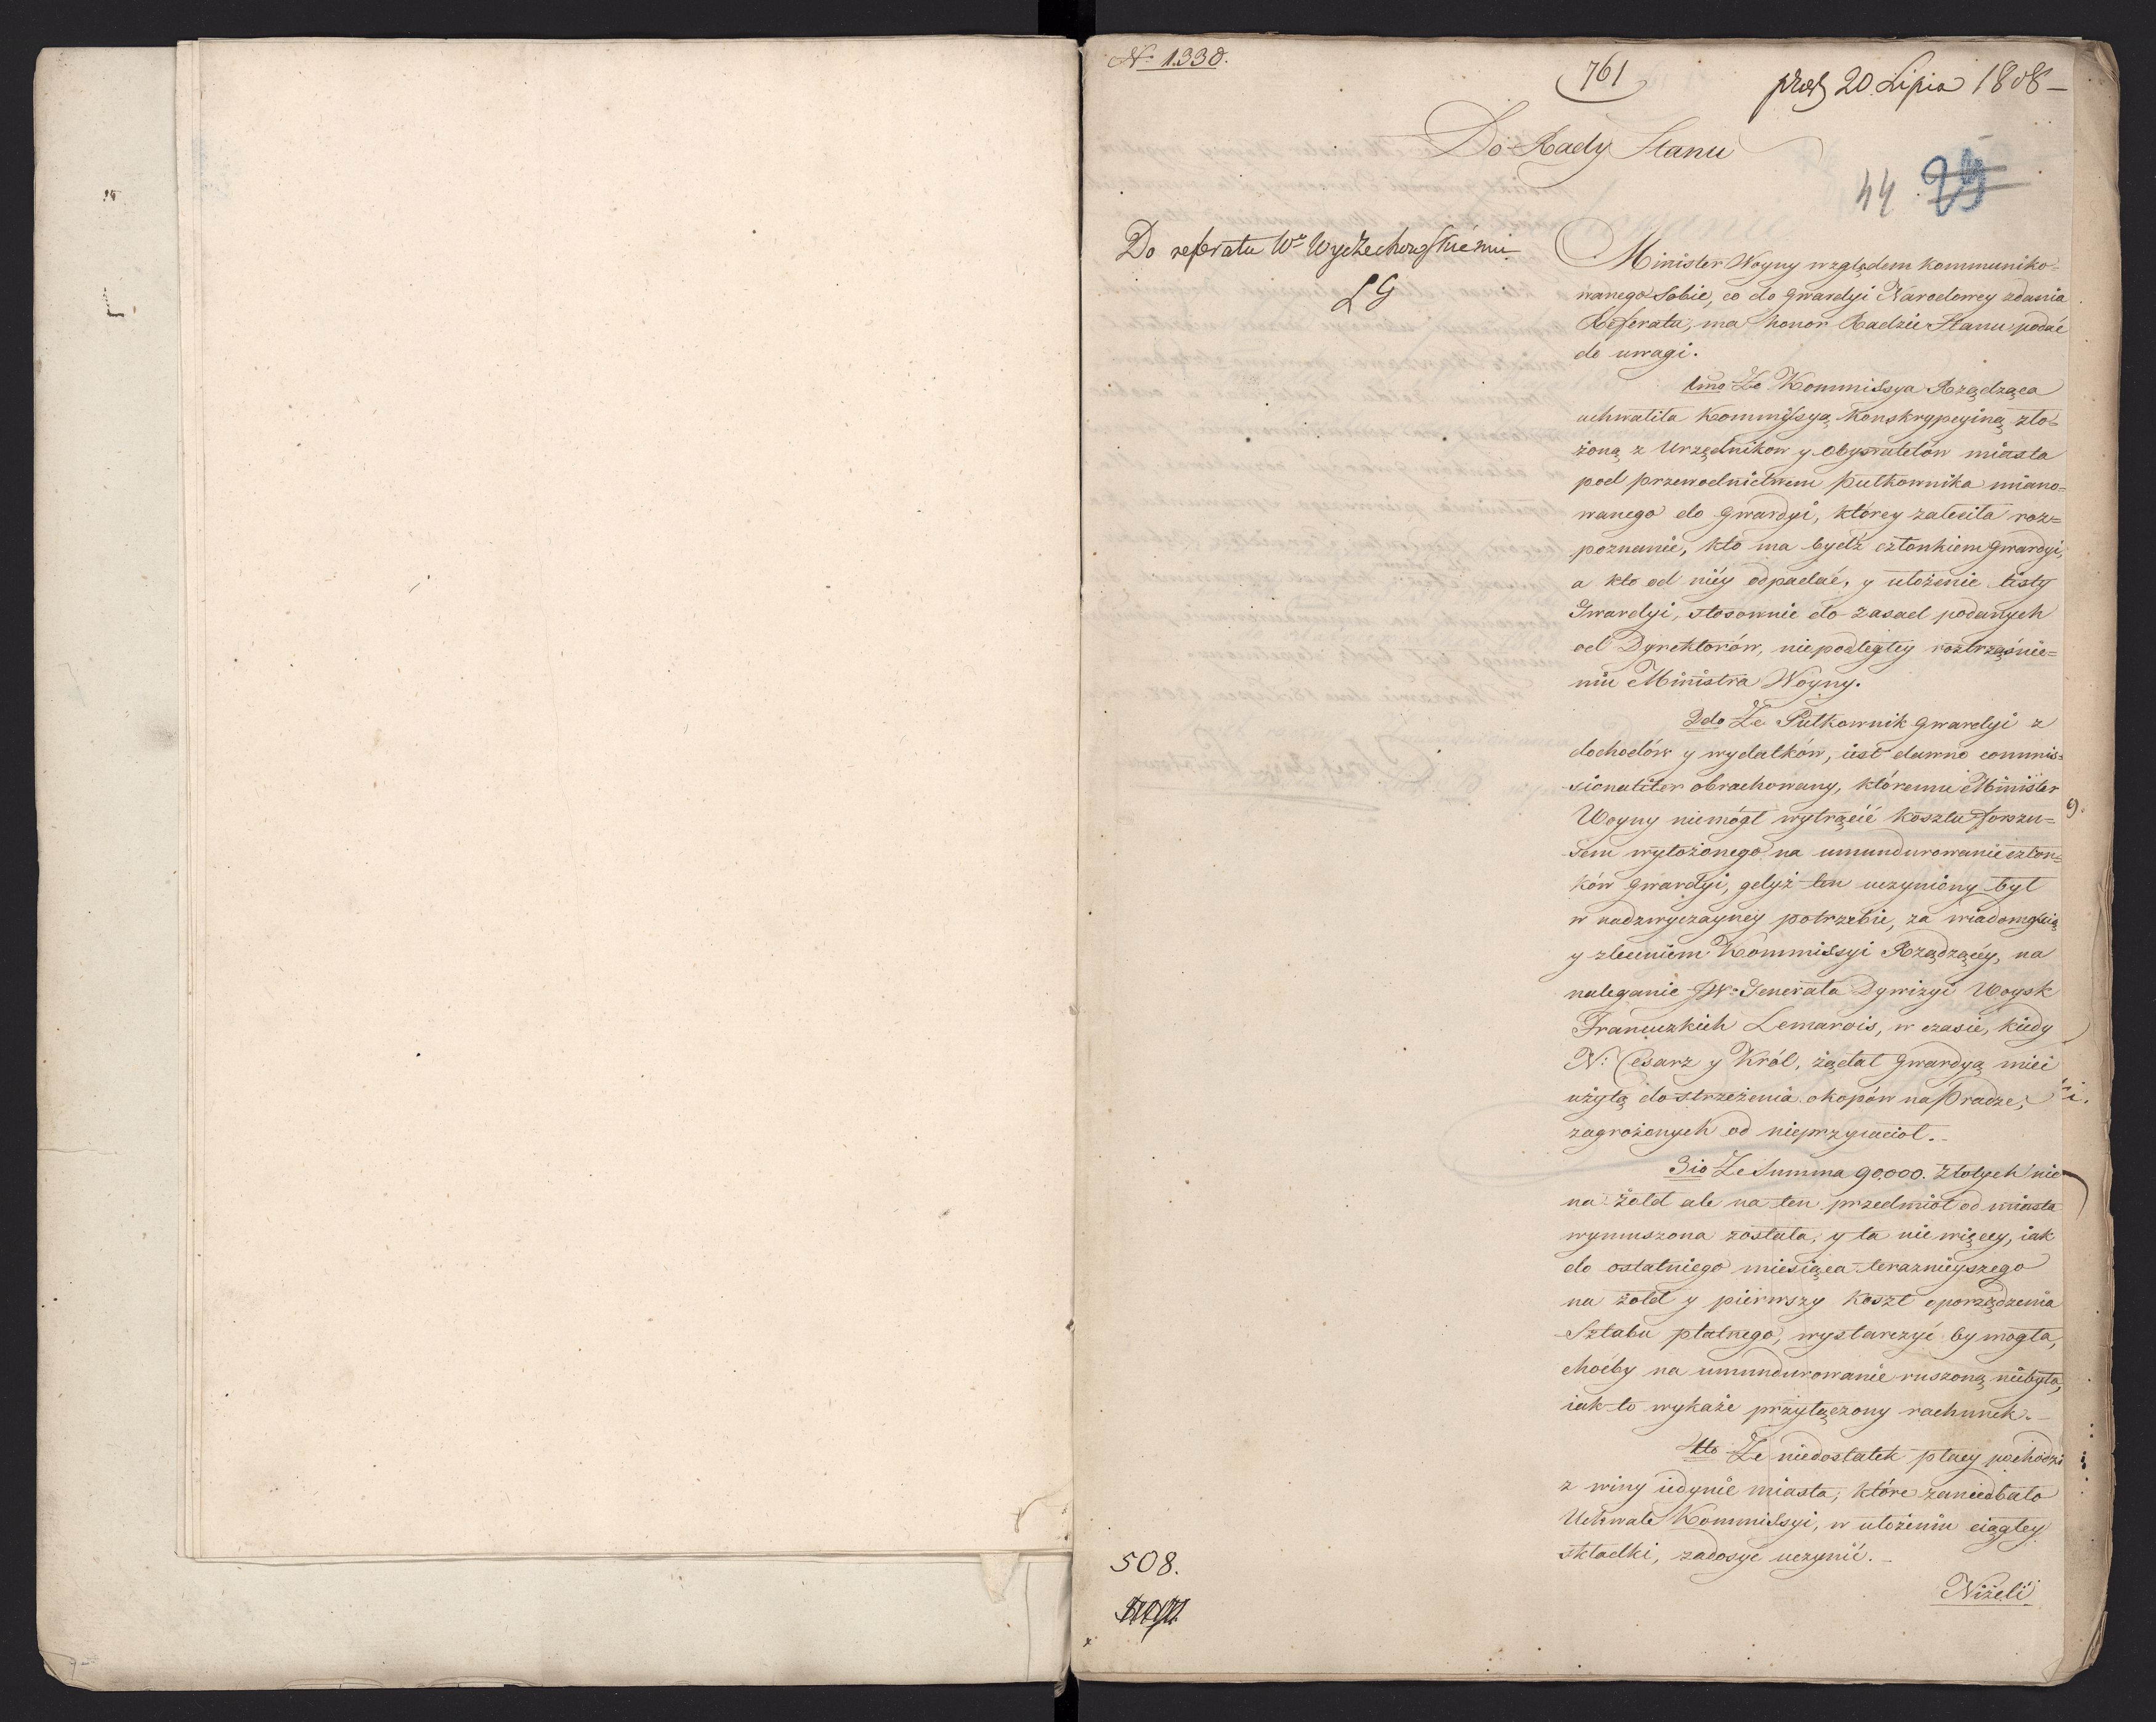 N. 1330.
761
praes 20 Lipca 1808
Do Rady Stanu
44
Do referatu Wu Wyczechowskiemu
LG
Minister Woyny względem kommuniko=
wanego Sobie, co do Gwardyi Narodowey zdania
Referata, ma honor Radzie Stanu podać
do uwagi.
1mo Że Kommissya Rządząca
uchwaliła Kommissyą Konskrypcyiną zło=
żoną z Urzędnikow y Obywatelów miasta
pod przewodnictwem pułkownika miano=
wanego do Gwardyi, którey zaleciła roz=
poznanie, kto ma bydź członkiem Gwardyi,
a kto od niéy odpadać, y ułożenie listy
Gwardyi, stosownie do zasad podanych
od Dyrektorów, niepodległey roztrząśnie=
niu Ministra Woyny.
2do Że Pułkownik Gwardyi z
dochodów y wydatków, iest dawno commis=
sionaliter obrachowany, któremu Minister
Woyny niemógł wytrącić kosztu forszu=
sem wyłożonego na umundurowanie człon=
ków Gwardyi, gdyż ten uczyniony był
w nadzwyczayney potrzebie, za wiadomością
y zleceniem Kommissyi Rządzącéy, na
naleganie JW. Generała Dywizyi Woysk
Francuzkich Lemarois, w czasie, kiedy
N. Cesarz y Król, żądał Gwardyą mieć
użytą do strzeżenia okopów na Pradze,
zagrożonych od nieprzyiaciół.
3io Że Summa 90,000. Złotych nie
na żołd ale na ten przedmiot od miasta
wymuszona została, y ta nie więcey, iak
do ostatniego miesiąca teraznieyszego
na żołd y pierwszy koszt oporządzenia
Sztabu płatnego, wystarczyć by mogła,
choćby na umundurowanie ruszoną niebyła,
iak to wykaże przyłączony rachunek.
4to Że niedostatek płacy pochodzi
z winy iedynie miasta, które zaniedbało
Uchwale Kommissyi, w ułożeniu ciągłey
składki, zadosyć uczynić.
Niżeli
508.